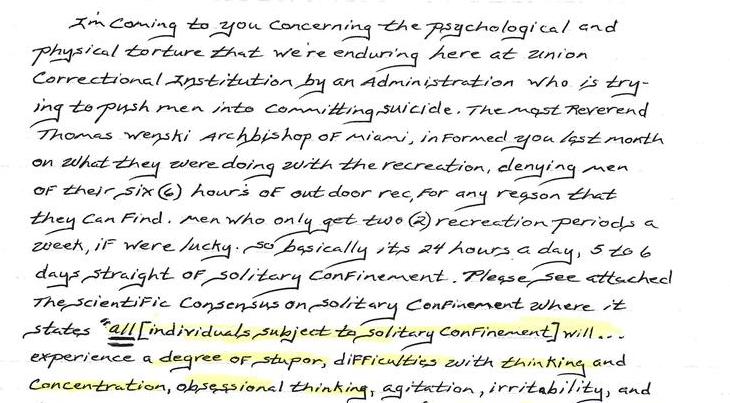 I'm coming to you concerning the psychological and
physical torture that we're enduring here at Union
Correctional Institution by an Administration who is try-
ing to push men into committing suicide. The most Reverend
Thomas Wenski Archbishop of Miami, informed you last month
on what they were doing with the recreation, denying men
of their six (6) hours of out door rec, for any reason that
they can find. Men who only get two (2) recreation periods a
week, if were lucky. So basically its 24 hours a day, 5 to 6
days straight of solitary confinement. Please see attached
The scientific consensus on solitary confinement where it
states "all [individuals subject to solitary confinement] will...
experience a degree of stupor, difficulties with thinking and
concentration, obsessional thinking, agitation, irritability, and